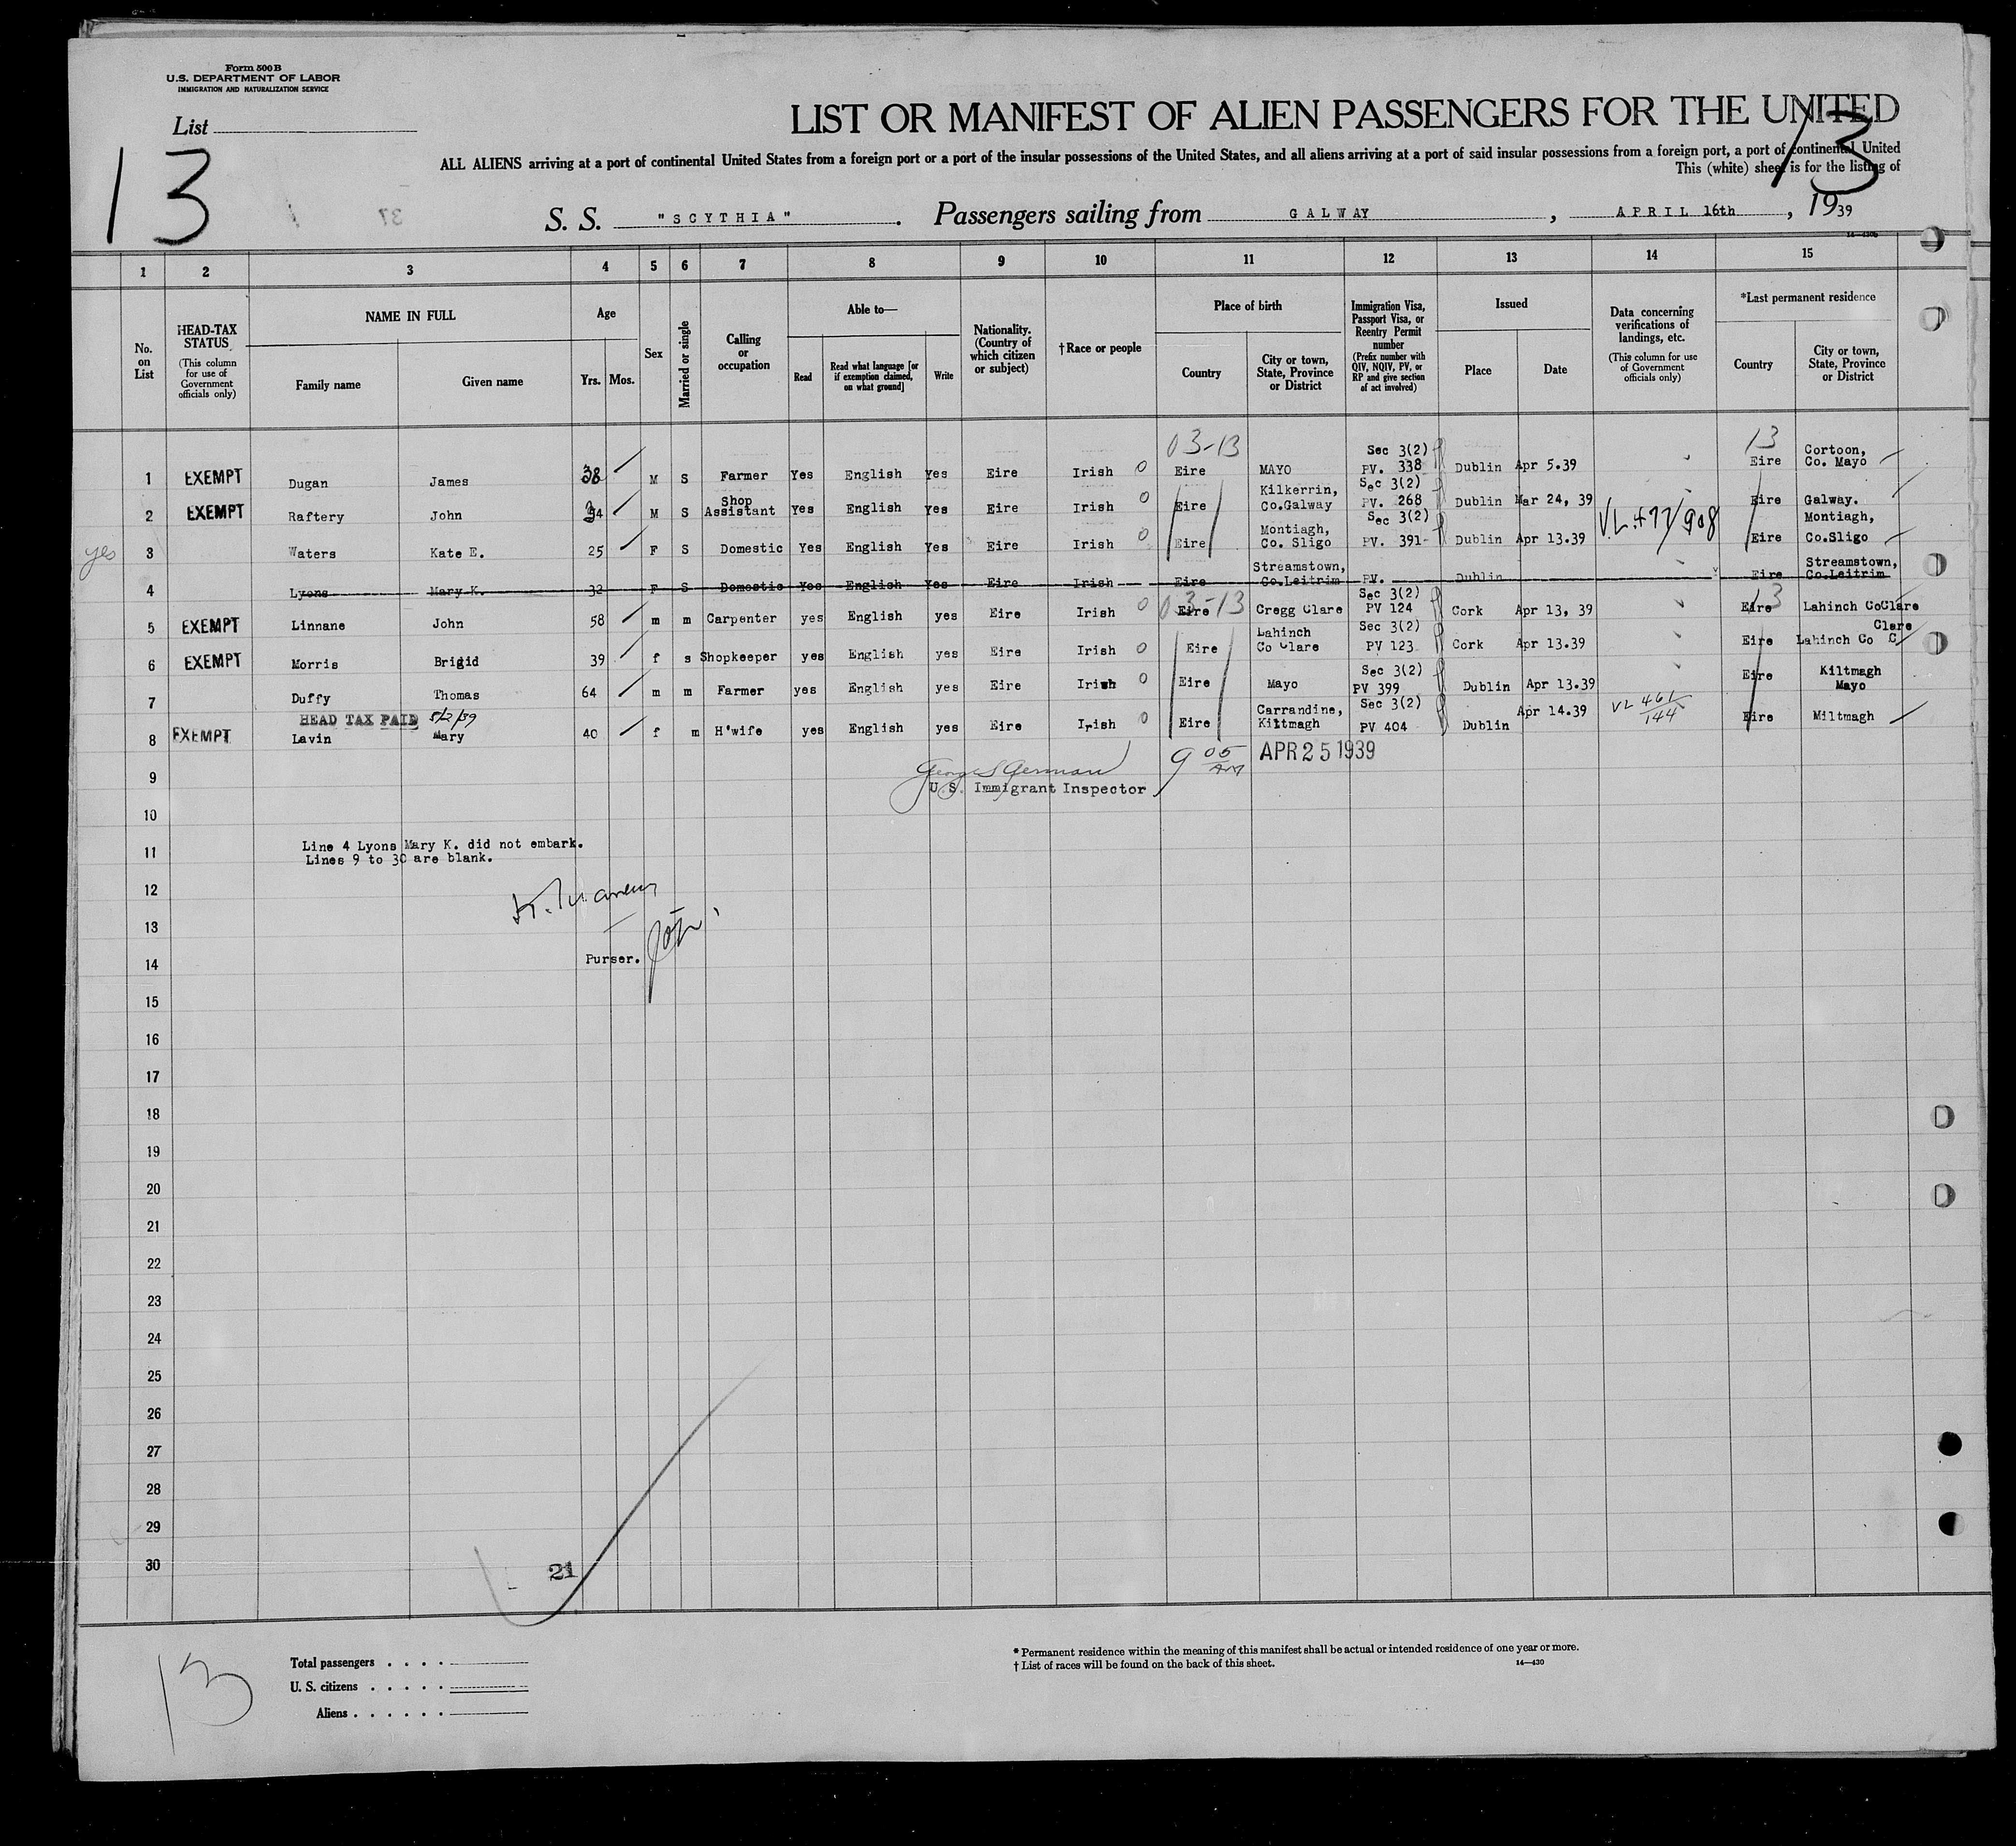 Form 500 B
U.S. DEPARTMENT OF LABOR
IMMIGRATION AND NATURALIZATION SERVICE
List
13
LIST OR MANIFEST OF ALIEN PASSENGERS FOR THE UNITED
13
ALL ALIENS arriving at a port of continental United States from a foreign port or a port of the insular possessions of the United States, and all aliens arriving at a port of said insular possessions from a foreign port, a port of continental United
This (white) sheet is for the listing of
37
S. S. "SCYTHIA". Passengers sailing from GALWAY, APRIL 16th, 1939
1 2 3 4 5 6 7 8 9 10 11 12 13 14 15
No. on List
HEAD-TAX STATUS (This column for use of Government officials only)
NAME IN FULL
Family name Given name
Age
Yrs. Mos.
Sex
Married or single
Calling or occupation
Able to—
Read Read what language [or if exemption claimed, on what ground] Write
Nationality. (Country of which citizen or subject)
†Race or people
Place of birth
Country City or town, State, Province or District
Immigration Visa, Passport Visa, or Reentry Permit number (Prefix number with QIV, NQIV, PV, or RP and give section of act involved)
Issued
Place Date
Data concerning verifications of landings, etc. (This column for use of Government officials only)
*Last permanent residence
Country City or town, State, Province or District
03-13 13
1 EXEMPT Dugan James 38 M S Farmer Yes English Yes Eire Irish 0 Eire MAYO Sec 3(2) PV. 338 Dublin Apr 5.39 Eire Cortoon, Co. Mayo
2 EXEMPT Raftery John 34 M S Shop Assistant Yes English Yes Eire Irish 0 Eire Kilkerrin, Co.Galway Sec 3(2) PV. 268 Dublin Mar 24, 39 Eire Galway.
yes 3 Waters Kate E. 25 F S Domestic Yes English Yes Eire Irish 0 Eire Montiagh, Co. Sligo Sec 3(2) PV. 391 Dublin Apr 13.39 Eire Montiagh, Co.Sligo
4 Lyons Mary K. 32 F S Domestic Yes English Yes Eire Irish Eire Streamstown, Co.Leitrim PV. Dublin Eire Streamstown, Co.Leitrim
03-13 13
5 EXEMPT Linnane John 58 m m Carpenter yes English yes Eire Irish 0 Eire Cregg Clare Sec 3(2) PV 124 Cork Apr 13, 39 Eire Lahinch CoClare
6 EXEMPT Morris Brigid 39 f s Shopkeeper yes English yes Eire Irish 0 Eire Lahinch Co Clare Sec 3(2) PV 123 Cork Apr 13.39 Eire Lahinch Co C Clare
7 Duffy Thomas 64 m m Farmer yes English yes Eire Irish 0 Eire Mayo Sec 3(2) PV 399 Dublin Apr 13.39 Eire Kiltmagh Mayo
HEAD TAX PAID 5/2/39
8 EXEMPT Lavin Mary 40 f m H'wife yes English yes Eire Irish 0 Eire Carrandine, Kiltmagh Sec 3(2) PV 404 Dublin Apr 14.39 VL 461/144 Eire Miltmagh
George S German 9 05 AM APR 25 1939
U.S. Immigrant Inspector
9
10
11
Line 4 Lyons Mary K. did not embark.
Lines 9 to 30 are blank.
12
13
Purser.
14
15
16
17
18
19
20
21
22
23
24
25
26
27
28
29
30
21
13
Total passengers
U. S. citizens
Aliens
* Permanent residence within the meaning of this manifest shall be actual or intended residence of one year or more.
† List of races will be found on the back of this sheet. 14—430